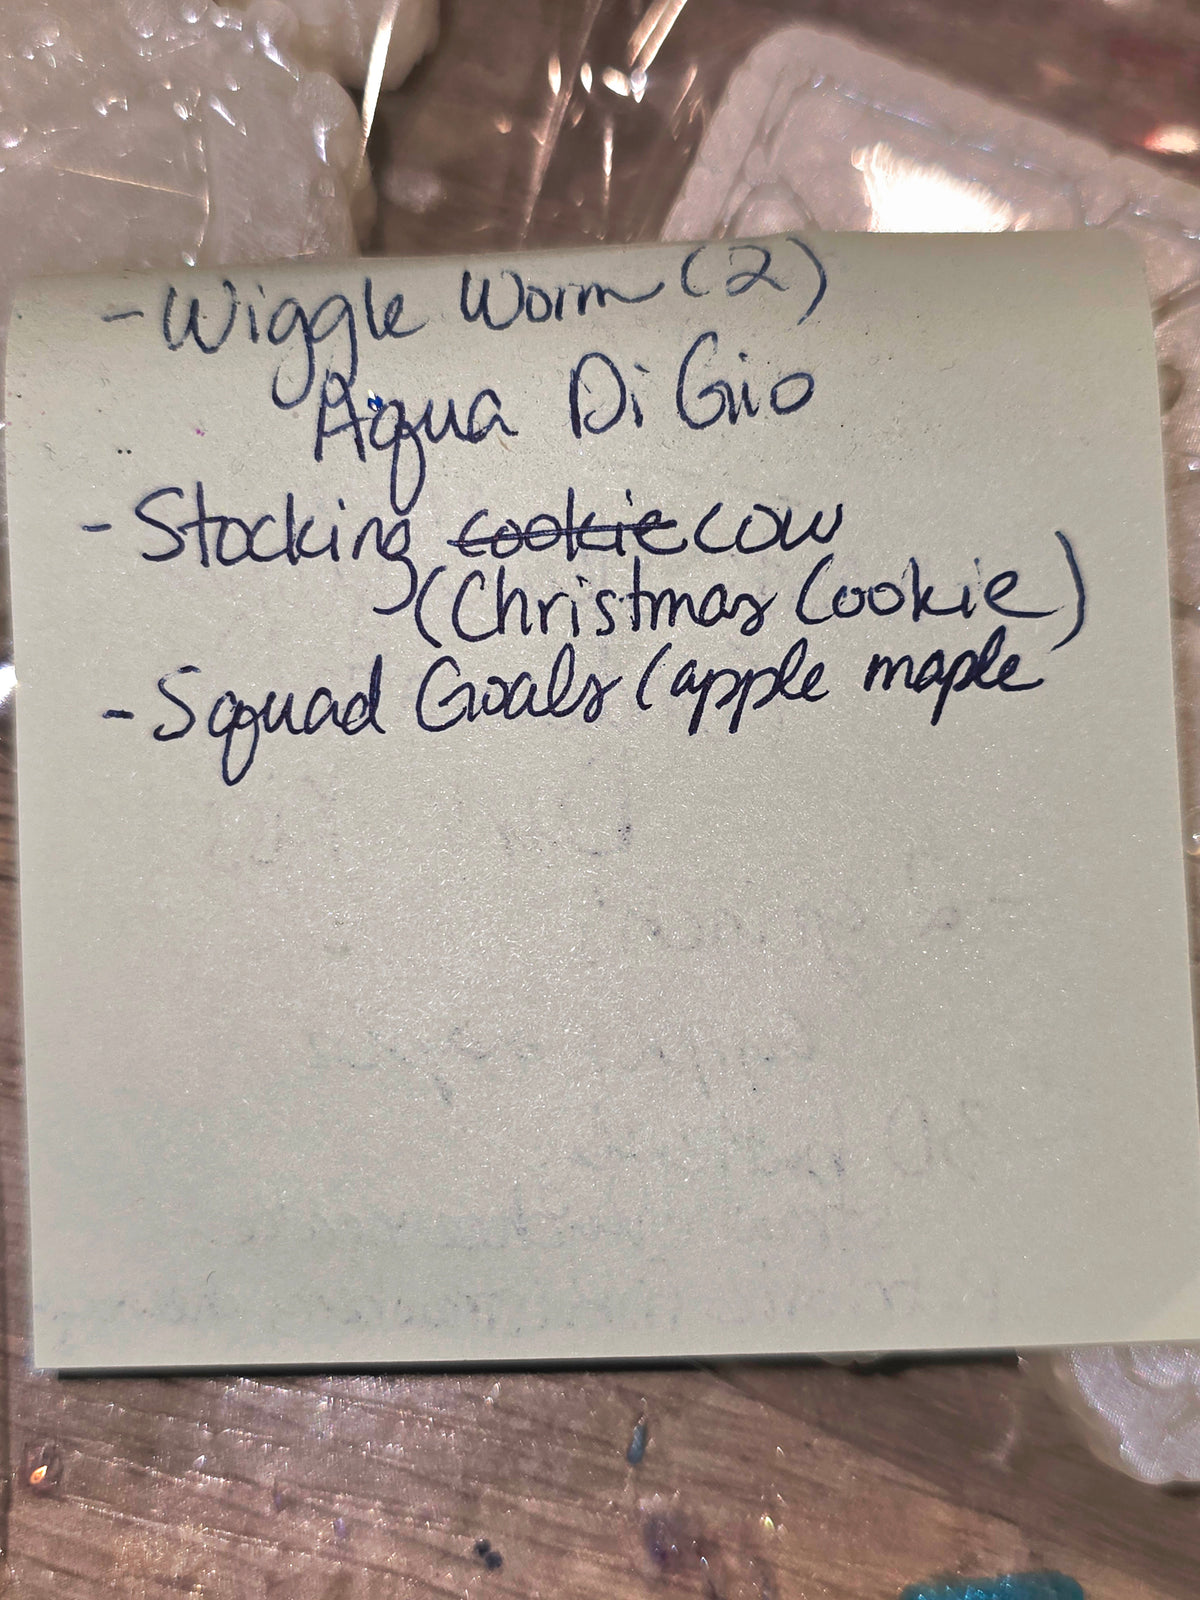 - Wiggle Worm (2)
Aqua Di Gio
- Stocking cookie cow
(Christmas Cookie)
- Squad Goals (apple maple